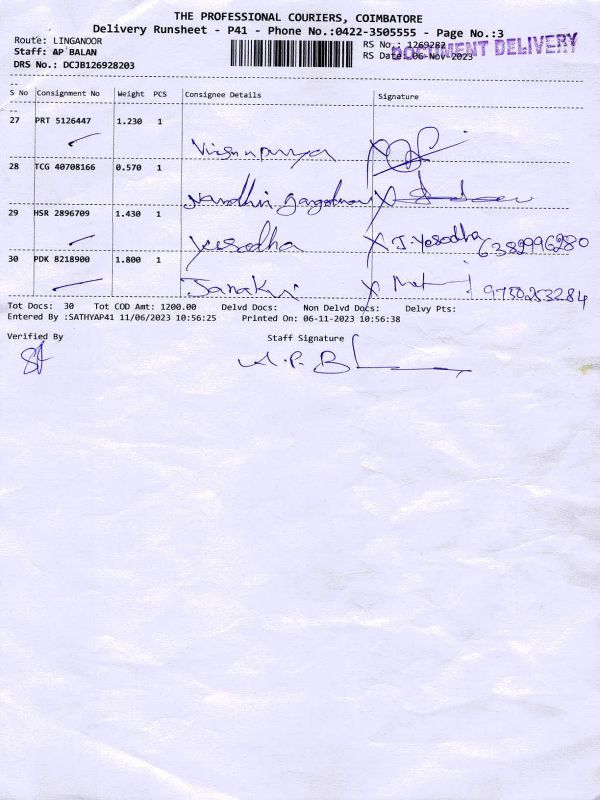 THE PROFESSIONAL COURIERS, COIMBATORE
Delivery Runsheet - P41 - Phone No.:0422-3505555 - Page No.:3
Route: LINGANOOR
RS No.: 1269282
DOCUMENT DELIVERY
Staff: AP BALAN
RS Date: 06-Nov-2023
DRS No.: DCJB126928203
S No Consignment No Weight PCS Consignee Details Signature
27 PRT 5126447 1.230 1
28 TCG 40708166 0.570 1
Nandhini
29 HSR 2896709 1.430 1
Yesodha X J. Yesodha 6382996280
30 PDK 8218900 1.800 1
Janaki X 9750253284
Tot Docs: 30 Tot COD Amt: 1200.00 Delvd Docs: Non Delvd Docs: Delvy Pts:
Entered By :SATHYAP41 11/06/2023 10:56:25 Printed On: 06-11-2023 10:56:38
Verified By Staff Signature